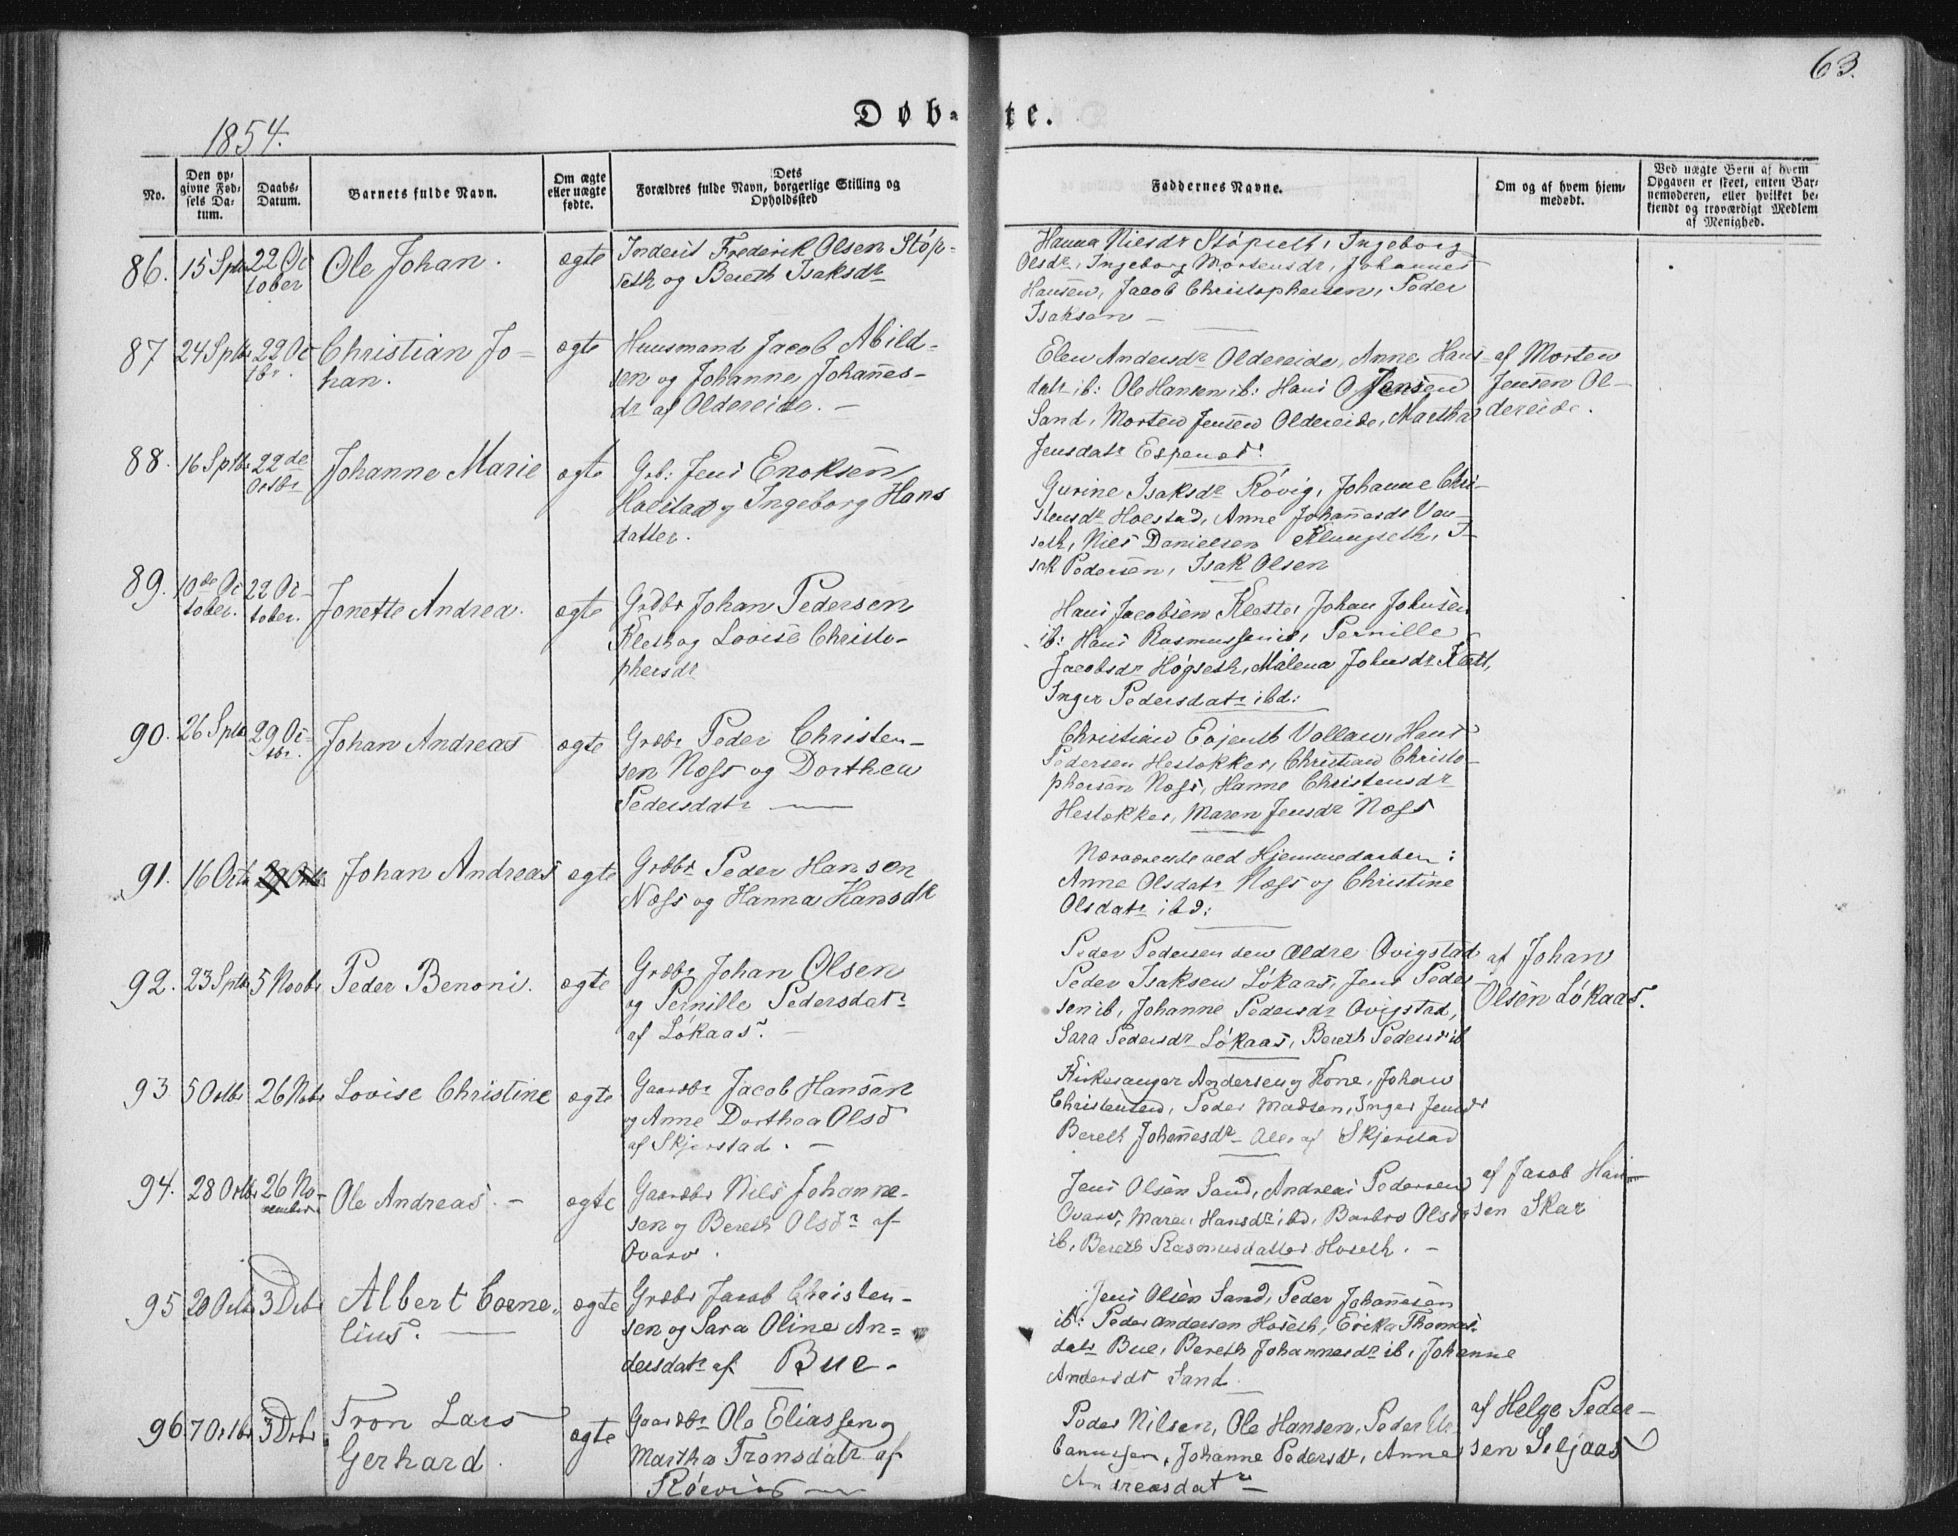 63.
1854.
Døb-te.
No.
Den op-
givne Fød-
sels Da-
tum.
Daabs-
Datum.
Barnets fulde Navn.
Om ægte
eller uægte
fødte.
Dets
Forældres fulde Navn, borgerlige Stilling og
Opholdssted
Faddernes Navne.
Om og af hvem hjem-
medøbt.
Ved uægte Børn af hvem
Opgaven er skeet, enten Bar-
nemoderen, eller hvilket be-
kjendt og troværdigt Medlem
af Menighed.
86. 15 Sptbr 22 Oc-
tober
Ole Johan.
ægte
Inderst Frederik Olsen Støp-
seth og Bereth Isaksdr
Hanna Nielsdr Støpseth, Ingeborg
Olsdr, Ingeborg Mortensdr, Johannes
Hansen, Jacob Christophersen, Peder
Isaksen
87 24 Sptbr 22 Oc-
tbr.
Christian Jo-
han.
ægte
Huusmand Jacob Abild-
sen og Johanna Johannes-
dr af Oldereide. -
Elen Andersdr Oldereide, Anne Hans-
datr ib: Ole Hansen ib: Hans O Jensen
Sand, Morten Jensen Oldereide, Martha
Jensdatr Espenæs.
af Morten
Jensen Ol-
dereide.
88. 16 Sptbr 22de
Octbr
Johanne Marie
ægte
Grb: Jens Enoksen
Holstad og Ingeborg Hans
datter.
Gurine Isaksdr Røvig, Johanne Chri-
stensdr Holstad, Anne Johannesdr
Nils Danielsen Klungseth, I-
sak Pedersen, Isak Olsen
89. 10de Oc-
tober. 22 Oc-
tober.
Jonette Andrea.
ægte
Grdbr Johan Pedersen
Klet og Lovise Christo-
phersdr
Hans Jacobsen Klette, Johan Johnsen
ib: Hans Rasmussen ib, Pernille
Jacobsdr Høgseth, Malena Johnsdr Klett,
Inger Pedersdatr ibd:
90. 26 Sptbr 29 Oc-
tbr.
Johan Andreas
ægte
Grdbr Peder Christen-
sen Næss og Dorthea
Pedersdatr
Christian Vollan, Hans
Pedersen Hestokker, Christian Christo-
phersen Næss, Hanne Christensdr
Hestokker, Maren Jensdr Næss
91. 16 Octb 29 Octbr
Johan Andreas
ægte
Grdbr Peder Hansen
Næss og Hanna Hansdr
Nærværende ved Hjemmedaaben:
Anne Olsdatr Næss og Christine
Olsdatr ibd:
92. 23 Sptbr 5 Novbr
Peder Benoni.
ægte
Grdbr Johan Olsen
og Pernille Pedersdatr
af Løkaas. -
Peder Pedersen den Ældre Øvigstad
Peder Isaksen Løkaas, Jens Peder-
sen ib, Johanne Pedersdr Øvigstad,
Sara Pedersdr Løkaas, Bereth Pedersd ib
af Johan
Olsen Løkaas.
93. 5 Octbr 26 Nobr
Lovise Christine
ægte
Gaardbr Jacob Hansen
og Anne Dorthea Olsd
af Skjerstad. -
Kirkesanger Andersen og Kone, Johan
Christensen, Peder Madsen, Inger Jensdr
Bereth Johannesdr Alle af Skjerstad
94. 28 Octbr 26 No-
vember
Ole Andreas. -
ægte
Gaardbr Nils Johanne-
sen og Bereth Olsdr af
Qvarv.
Jens Olsen Sand, Andreas Pedersen
Qvarv, Maren Hansdr ibd, Barbro Olsdr
ib, Bereth Rasmusdatter Hoseth. -
af Jacob Han-
sen Skar
95 20 Octbr 3 Debr
Albert Corne-
lius.
ægte
Grdbr Jacob Christen-
sen og Sara Oline An-
dersdatr af Bue.
Jens Olsen Sand, Peder Johannesen
ib: Peder Andersen Hoseth, Erika Thomes-
datr Bue, Bereth Johannesdr ib, Johanne
Andersdr Sand
96. 7 Octbr 3 Debr
Tron Lars
Gerhard.
ægte
Gaardbr Ole Eliassen og
Martha Tronsdatr af
Røsvig
Peder Nilsen, Ole Hansen, Peder Ur-
banussen, Johanne Pedersdr, Anne
Andreasdatr
af Helge Peder-
sen Seljaas